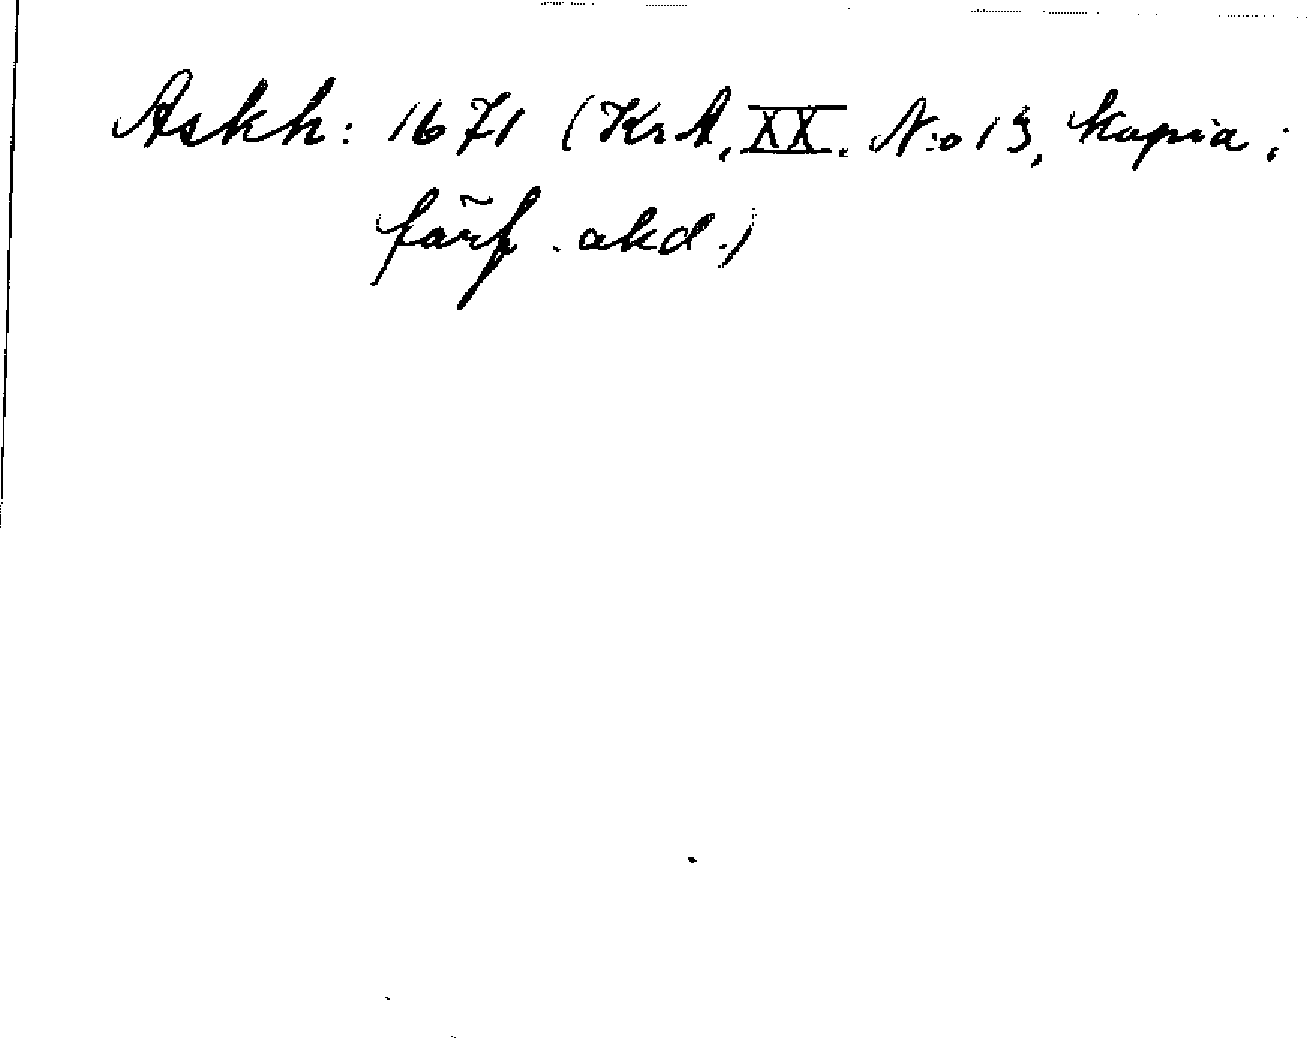 Askh: 1671 (KrA, XX. N:o 13, kopia;
förf. okd.)